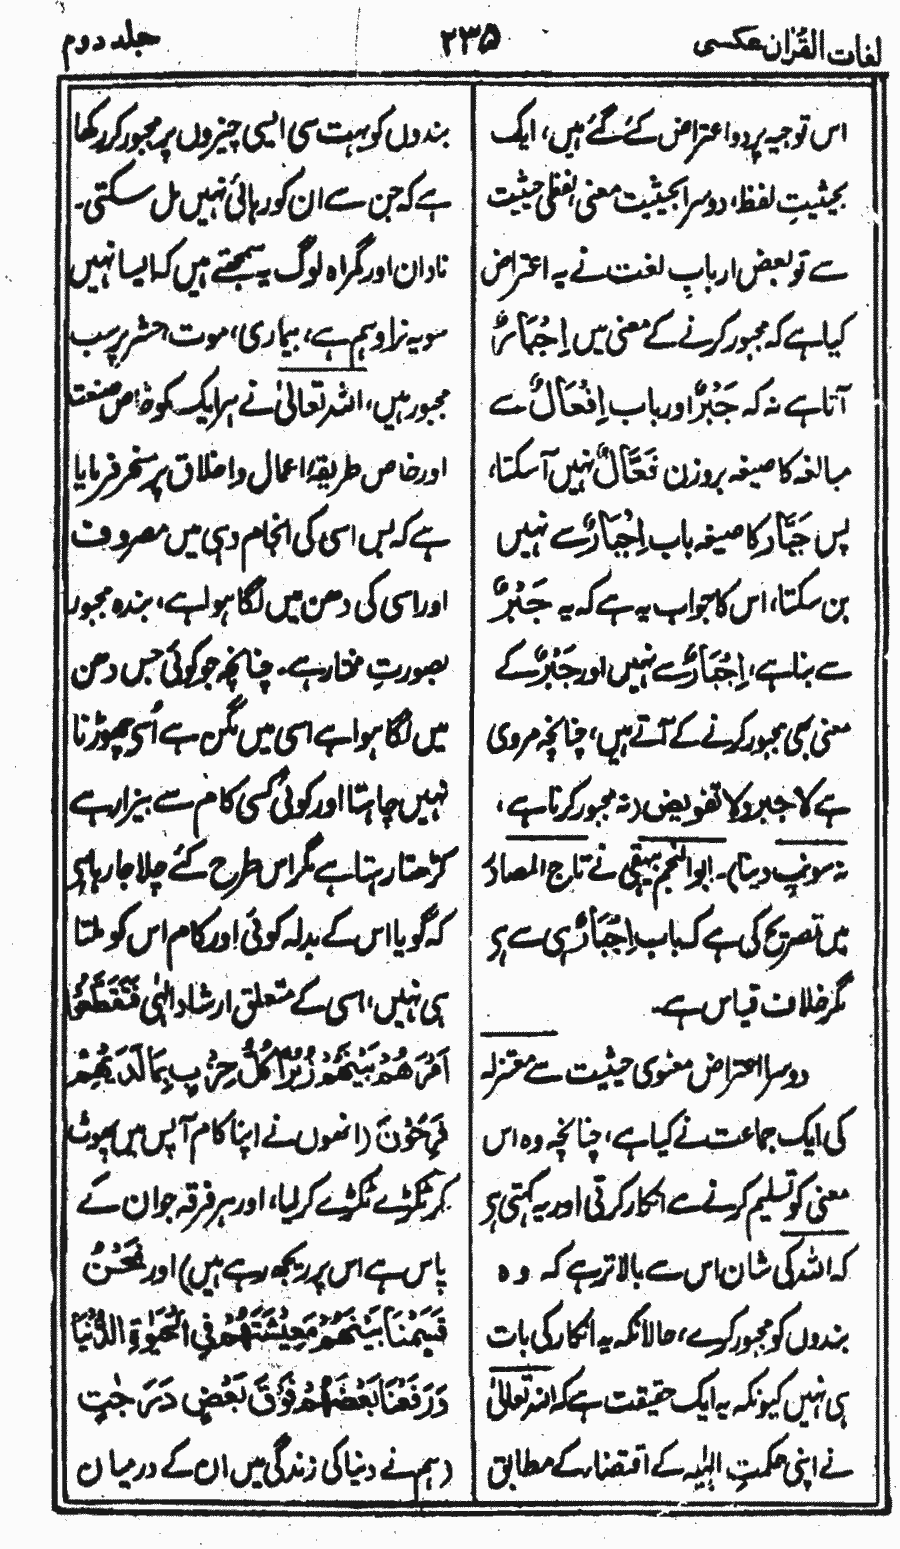 لغات القرآن عکسی
۲۳۵
جلد دوم
اس توجیہ پر دو اعتراض کئے گئے ہیں، ایک
بحیثیتِ لفظ، دوسرا بحیثیت معنی لفظی حیثیت
سے تو بعض اربابِ لغت نے یہ اعتراض
کیا ہے کہ مجبور کرنے کے معنی میں اِجْبَارٌ
آتا ہے نہ کہ جَبْرٌ اور باب اِفْعَالٌ سے
مبالغہ کا صیغہ بروزن فَعَّالٌ نہیں آسکتا،
پس جَبَّار کا صیغہ باب اِجْبَارٌ سے نہیں
بن سکتا، اس کا جواب یہ ہے کہ یہ جَبْرٌ
سے بنا ہے، اِجْبَارٌ سے نہیں اور جَبْرٌ کے
معنی بھی مجبور کرنے کے آتے ہیں، چنانچہ مروی
ہے لا جبر ولا تفویض (نہ مجبور کرنا ہے،
نہ سونپ دینا)۔ ابو النجم بیہقی نے تاج المصادر
میں تصریح کی ہے کہ باب اِجْبَارٌ ہی سے ہی
مگر خلاف قیاس ہے۔
دوسرا اعتراض معنوی حیثیت سے معتزلہ
کی ایک جماعت نے کیا ہے، چنانچہ وہ اس
معنی کو تسلیم کرنے سے انکار کرتی اور یہ کہتی ہی
کہ اللہ کی شان اس سے بالاتر ہے کہ وہ
بندوں کو مجبور کرے، حالانکہ یہ انکار کی بات
ہی نہیں کیونکہ یہ ایک حقیقت ہے کہ اللہ تعالیٰ
نے اپنی حکمتِ الٰہیہ کے اقتضاء کے مطابق
بندوں کو بہت سی ایسی چیزوں پر مجبور کر رکھا
ہے کہ جن سے ان کو رہائی نہیں مل سکتی۔
نادان اور گمراہ لوگ یہ سمجھتے ہیں کہ ایسا نہیں
سو یہ نرا وہم ہے، بیماری، موت، حشر پر سب
مجبور ہیں، اللہ تعالیٰ نے ہر ایک کو خاص صنعت
اور خاص طریقۂ اعمال و اخلاق پر مسخر فرمایا
ہے کہ بس اسی کی انجام دہی میں مصروف
اور اسی کی دھن میں لگا ہوا ہے، بندہ مجبور
بصورتِ مختار ہے۔ چنانچہ جو کوئی جس دھن
میں لگا ہوا ہے اسی میں مگن ہے اُسی چھوڑنا
نہیں چاہتا اور کوئی کسی کام سے بیزار ہے
کڑھتا رہتا ہے مگر اس طرح کئے چلا جا رہا ہی
کہ گویا اس کے بدلہ کوئی اور کام اس کو ملتا
ہی نہیں، اسی کے متعلق ارشاد الٰہی فَتَقَطَّعُوْا
اَمْرَهُمْ بَيْنَهُمْ زُبُرًا كُلُّ حِزْبٍ بِمَا لَدَيْهِمْ
فَرِحُوْنَ (انھوں نے اپنا کام آپس میں پھوٹ
کر ٹکڑے ٹکڑے کر لیا، اور ہر فرقہ جو ان کے
پاس ہے اس پر ریجھ رہے ہیں) اور نَحْنُ
قَسَمْنَا بَيْنَهُمْ مَعِيْشَتَهُمْ فِي الْحَيٰوةِ الدُّنْيَا
وَرَفَعْنَا بَعْضَهُمْ فَوْقَ بَعْضٍ دَرَجٰتٍ
(ہم نے دنیا کی زندگی میں ان کے درمیان